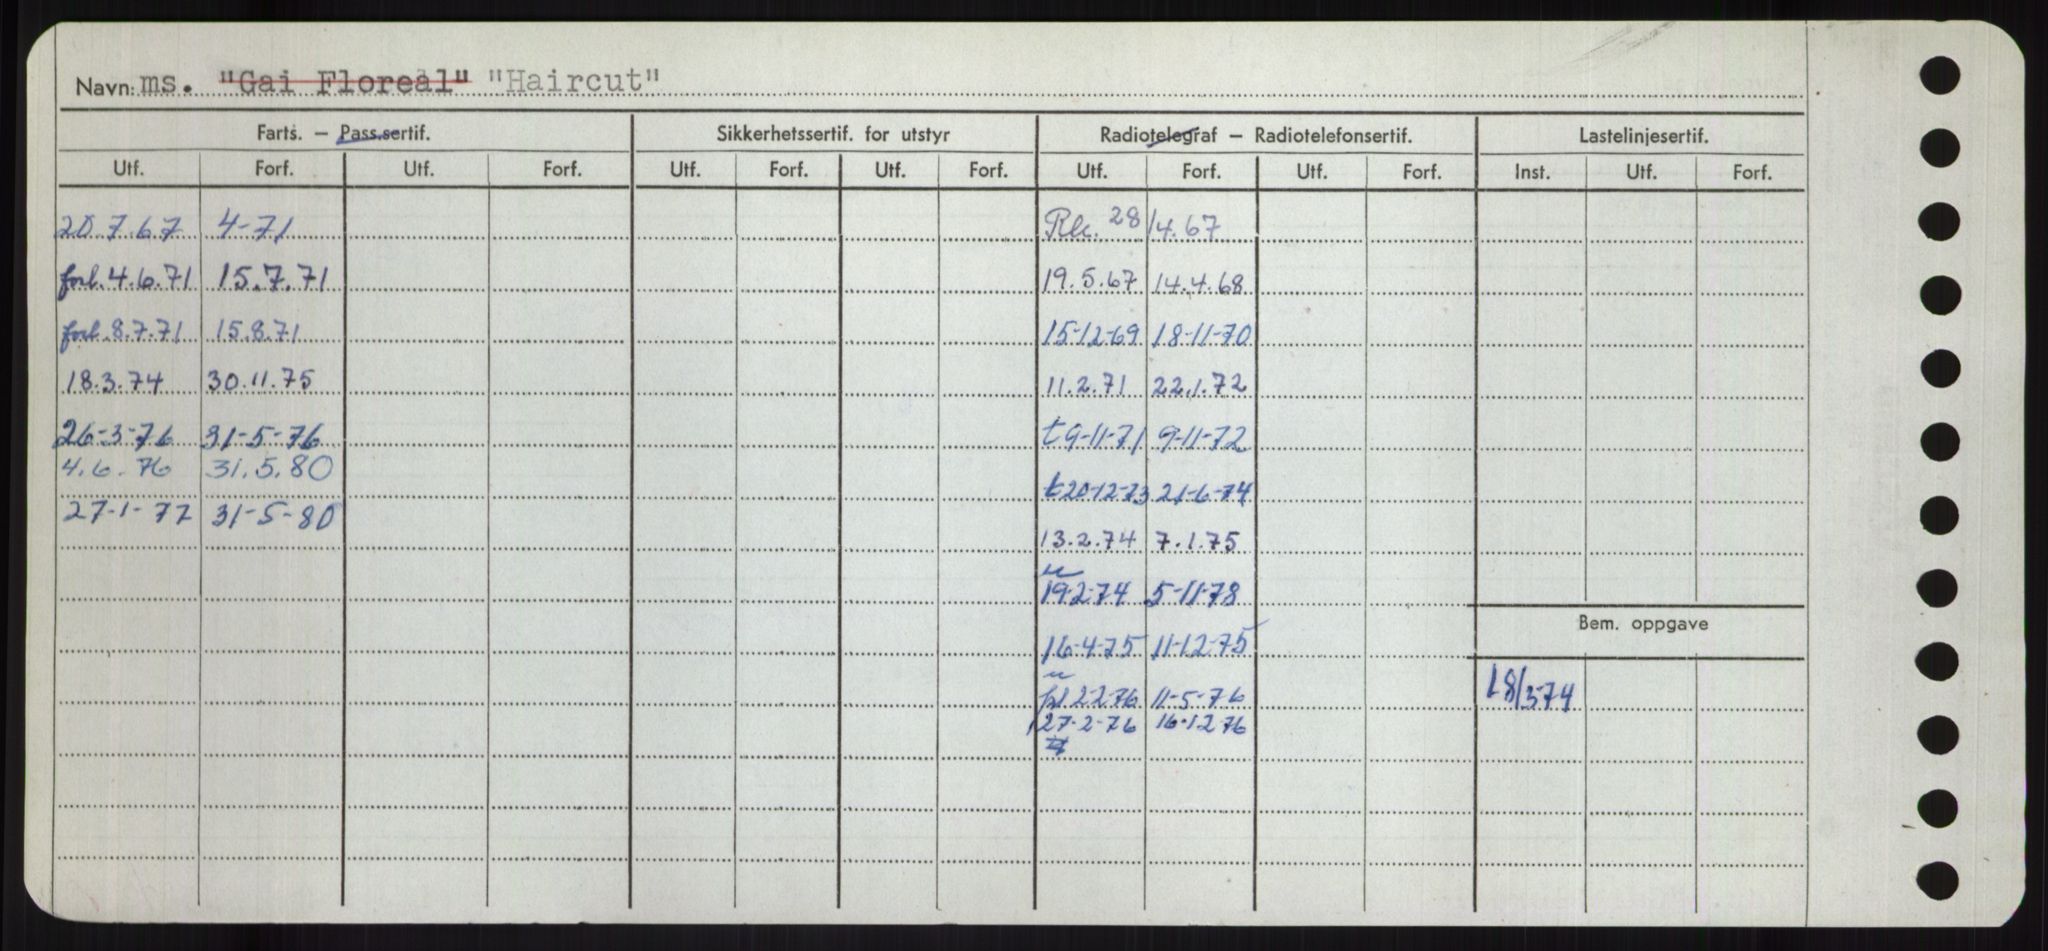 Navn: ms. "Gai Floreal" "Haircut"
Farts. — Pass.sertif. Sikkerhetssertif. for utstyr Radiotelegraf — Radiotelefonsertif. Lastelinjesertif.
Utf. Forf. Utf. Forf. Utf. Forf. Utf. Forf. Utf. Forf. Utf. Forf. Inst. Utf. Forf.
20.7.67 4-71 28/4.67
forl. 4.6.71 15.7.71 19.5.67 14.4.68
forl. 8.7.71 15.8.71 15-12-69 18-11-70
18.3.74 30.11.75 11.2.71 22.1.72
26-3-76 31-5-76 t 9-11-71 9-11-72
4.6.76 31.5.80
t 20-12-73 21-6-74
27-1-77 31-5-80
13.2.74 7.1.75
19-2-74 5-11-78
Bem. oppgave
16-4-75 11-12-75
18/3-74
2-2-76 11-5-76
27-2-76 16-12-76